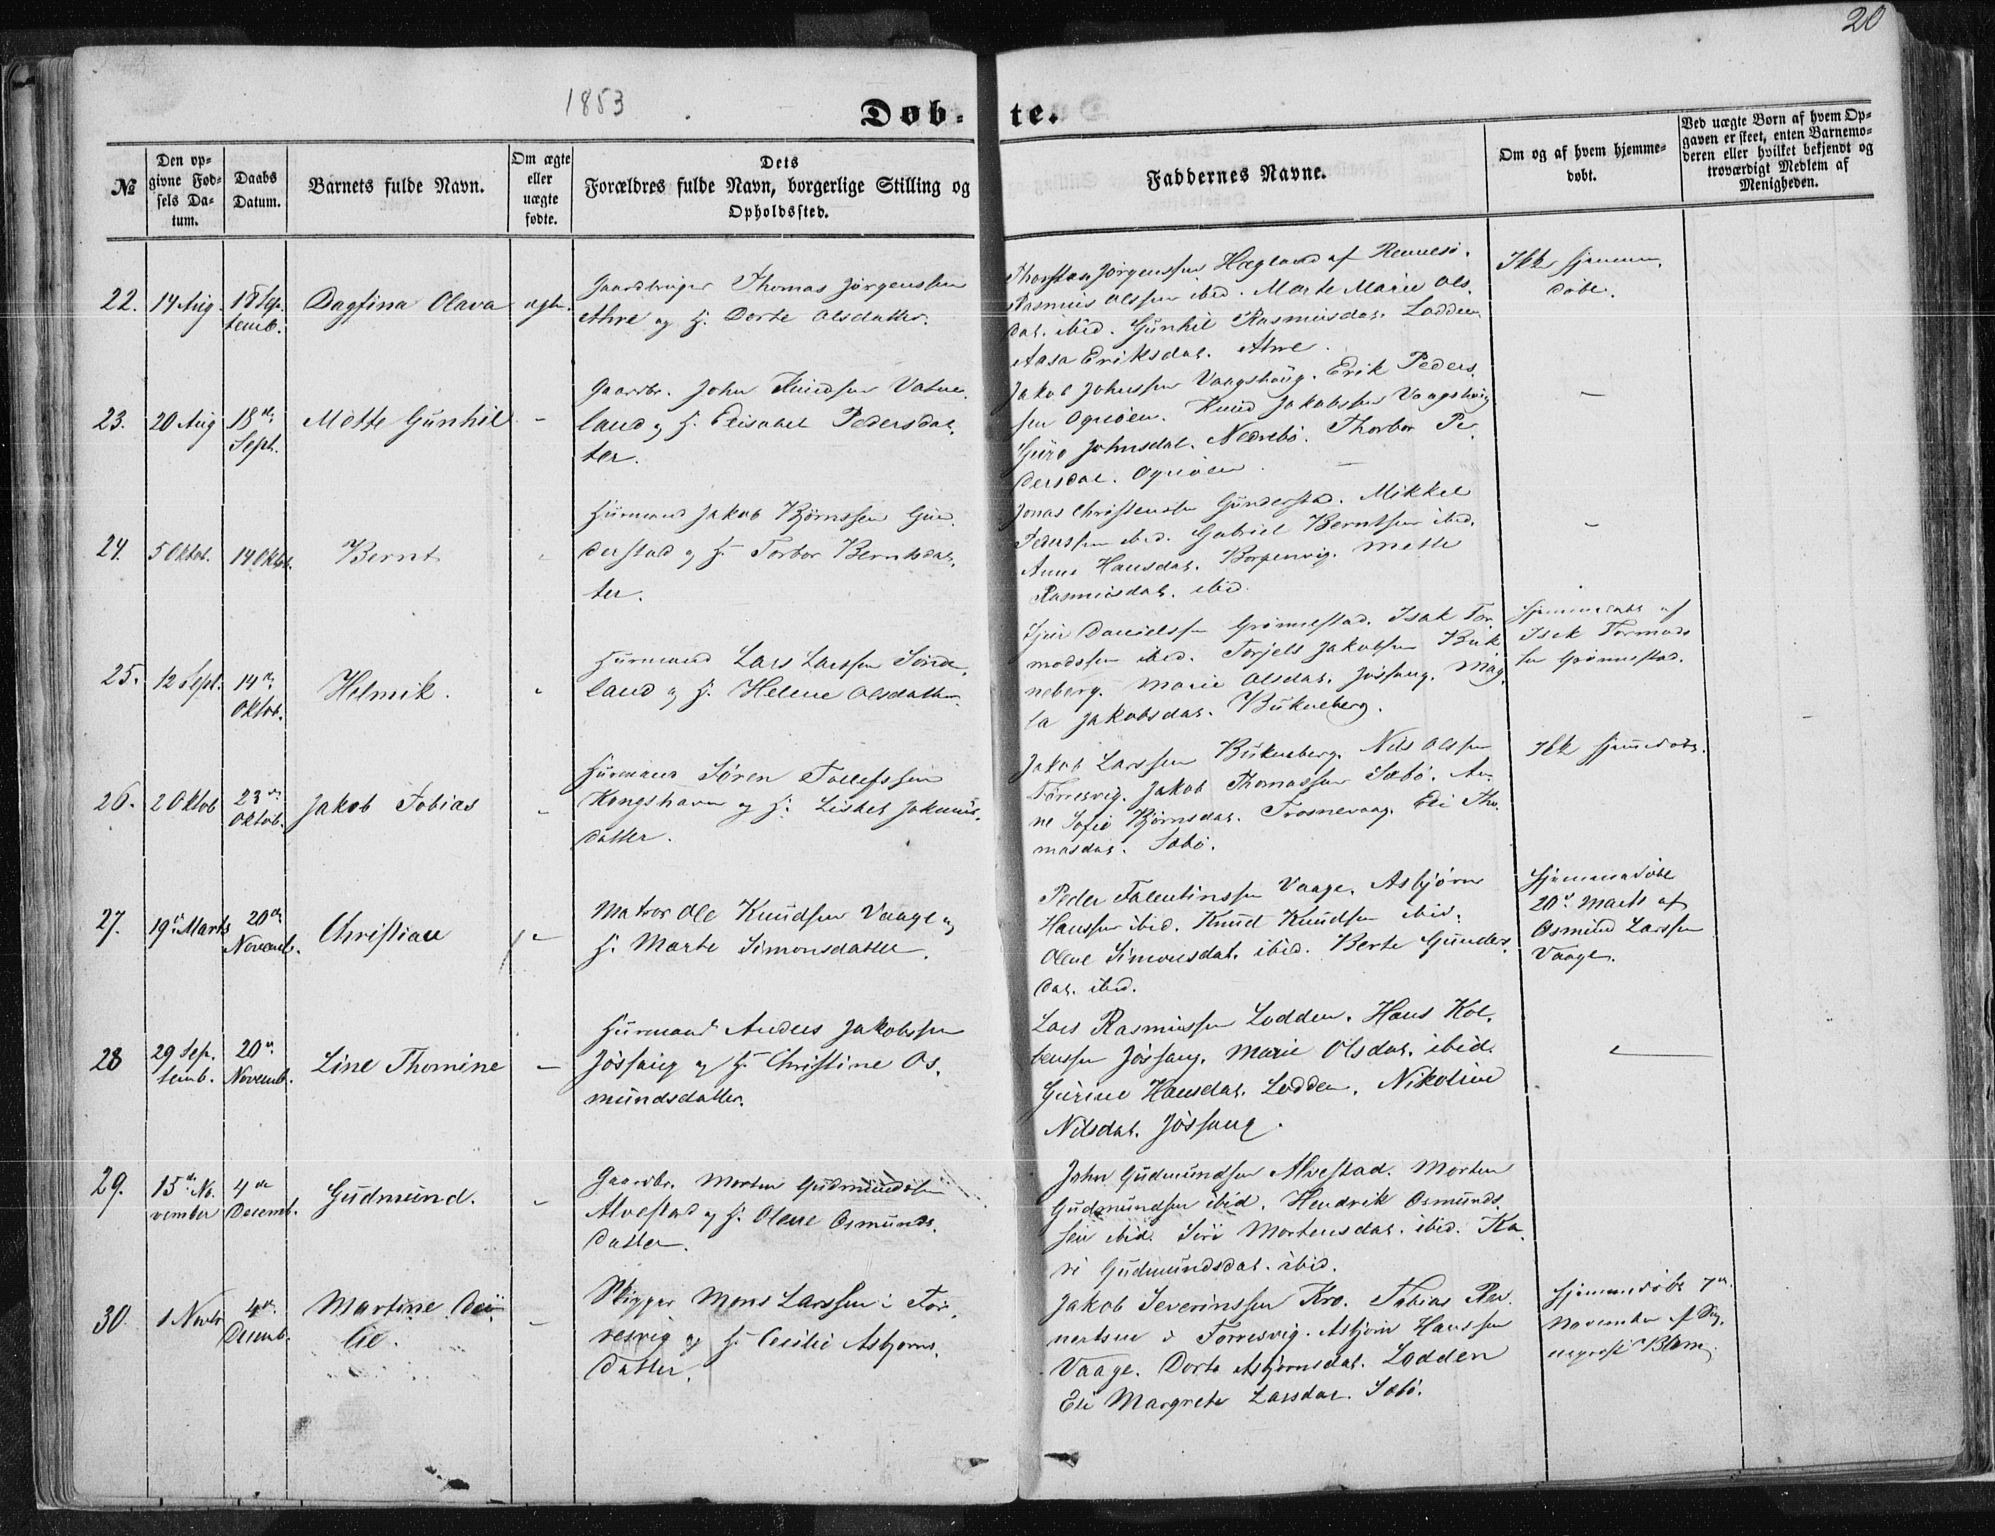 20
1853
Døb- te.
№
Den op-
givne Fød-
sels Da-
tum.
Daabs
Datum.
Barnets fulde Navn.
Om ægte
eller
uægte
fødte.
Dets
Forældres fulde Navn, borgerlige Stilling og
Opholdssted.
Faddernes Navne.
Om og af hvem hjemme-
døbt.
Ved uægte Børn af hvem Op-
gaven er skeet, enten Barnemo-
deren eller hvilket bekjendt og
troværdigt Medlem af
Menigheden.
22. 14 Aug. 18 Sep-
temb.
Dagfina Olava
ægte.
Gaardbruger Thomas Jørgenssen
Ahre og H. Dorte Olsdatter.
Jørgenssen Hægland af Rennesö.
Rasmus Olssen ibid. Marte Marie Ols-
dat. ibid. Gunhil Rasmusdat. Lodden
Aasa Eriksdat. Ahre.
Ikke hjemme-
døbt.
23. 20 Aug 18de
Sept.
Mette Gunhil
-
Gaardbr. John Knudsen Vatne-
land og H. Elisabet Pedersdat-
ter.
Jakob Johnssen Vaagshaug. Erik Peders-
sen Ognøen. Knud Jakobssen Vaagshaug
Guro Johnsdat. Nedrebö. Thorbor Pe-
dersdat. Ognøen.
-
24. 5 Oktob. 14 Oktob.
Bernt
Huusmand Jakob Bjørnssen Gun-
derstad og H. Torbor Berntsdat-
ter.
Jonas Christenssen Gunderstad. Mikkel
Pederssen ibid. Gabriel Berntsen ibid.
Anne Hansdat. Borgenvig. Mette
Rasmusdat. ibid.
-
25. 12 Sept. 14de
Oktob.
Helmik.
Huusmand Lars Larssen Sønde-
land og H. Helene Olsdatter.
Danielssen Grönnestad. Isak Tor-
modssen ibid. Torjels Jakobssen Buk-
neberg. Marie Olsdat. Jösfang. Mag-
la Jakobsdat. Bukneberg.
Hjemmedöbt af
Isak Tormods-
sen Grönnestad.
26. 2 Oktob 23de
Oktob.
Jakob Tobias
-
Huusmand Sören Tollefssen
Kongshavn og H. Lisbet Jakobs-
datter.
Jakob Larssen Bukneberg. Nils Olssen
Torresvig. Jakob Thomassen Sæbö. An-
ne Sofie Bjørnsdat. Trosnevaag. Eli Tho-
masdat. Sæbö.
Ikke hjemmedöbt.
27. 19de Marts 20de
Novemb.
Christian
-
Matros Ole Knudsen Vaage og
H. Marte Simonsdatter.
Peder Falentinssen Vaage. Asbjørn
Hanssen ibid. Knud Knudsen ibid.
Olene Simonsdat. ibid. Berte Gunders-
dat. ibid.
Hjemmedöbt
20de Marts af
Osmund Larssen
Vaage.
28 29 Sep-
temb. 20de
Novemb.
Line Thomine
-
Huusmand Anders Jakobssen
Jösfang og H. Christine Os-
mundsdatter.
Lars Rasmussen Lodden. Hans Kol-
benssen Jösfang. Marie Olsdat. ibid.
Gurine Hansdat. Lodden. Nikoline
Nilsdat. Jösfang.
-
29. 15de No-
vember 4de
Decemb.
Gudmund.
-
Gaardbr. Morten Gudmundsen
Alvestad og H. Olene Osmunds-
datter.
John Gudmundsen Alvestad. Morten
Gudmundsen ibid. Hendrik Osmunds-
sen ibid. Siri Mortensdat. ibid. Ka-
ri Gudmundsdat. ibid.
30. 1 Novbr 4de
Decemb.
Martine Ceci-
lie.
-
Skipper Mons Larssen i Tor-
resvig og H. Cecilie Asbjørns-
datter.
Jakob Severinssen Kro. Tobias
i Torresvig. Asbjørn Hanssen
Vaage. Dorte Asbjørnsdat. Lodden
Eli Margrete Larsdat. Sæbö.
Hjemmedöbt 7de
November af